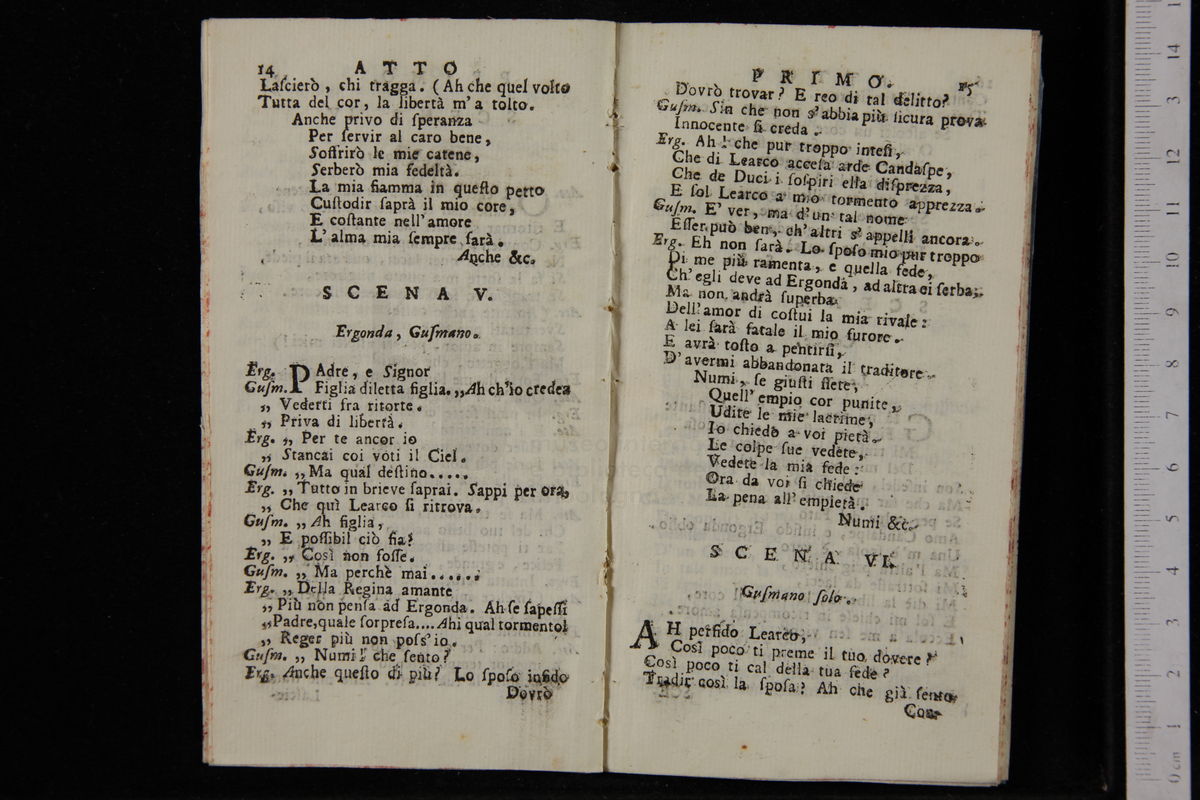 14 ATTO
Lascierò, chi tragga. (Ah che quel volto
Tutta del cor, la libertà m'a tolto.
Anche privo di speranza
Per servir al caro bene,
Soffrirò le mie catene,
Serberò mia fedeltà.
La mia fiamma in questo petto
Custodir saprà il mio core,
E costante nell'amore
L'alma mia sempre sarà.
Anche &c.
SCENA V.
Ergonda, Gusmano.
Erg. PAdre, e Signor
Gusm. Figlia diletta figlia. „Ah ch'io credea
„ Vederti fra ritorte.
„ Priva di libertà.
Erg. „ Per te ancor io
„ Stancai coi voti il Ciel.
Gusm. „ Ma qual destino.....
Erg. „ Tutto in brieve saprai. Sappi per ora,
„ Che quì Learco si ritrova.
Gusm. „ Ah figlia,
„ E possibil ciò fia?
Erg. „ Così non fosse.
Gusm. „ Ma perchè mai......
Erg. „ Della Regina amante
„ Più non pensa ad Ergonda. Ah se sapessi
„Padre, quale sorpresa.... Ahi qual tormento!
„ Reger più non poss'io.
Gusm. „ Numi! che sento?
Erg. Anche questo di più? Lo sposo infido
Dovrò
PRIMO. 15
Dovrò trovar? E reo di tal delitto?
Gusm. Sin che non s'abbia più sicura prova
Innocente si creda.
Erg. Ah! che pur troppo intesi,
Che di Learco accesa arde Candaspe,
Che de Duci i sospiri ella disprezza,
E sol Learco a mio tormento apprezza.
Gusm. E' ver, ma d'un tal nome
Esser può ben, ch'altri s'appelli ancora.
Erg. Eh non sarà. Lo sposo mio pur troppo
Di me più ramenta, e quella fede,
Ch'egli deve ad Ergonda, ad altra ei serba;
Ma non andrà superba
Dell'amor di costui la mia rivale:
A lei sarà fatale il mio furore.
E avrà tosto a pentirsi,
D'avermi abbandonata il traditore.
Numi, se giusti siete,
Quell'empio cor punite,
Udite le mie lacrime,
Io chiedo a voi pietà.
Le colpe sue vedete,
Vedete la mia fede:
Ora da voi si chiede
La pena all'empietà.
Numi &c.
SCENA VI.
Gusmano solo.
AH perfido Learco,
Così poco ti preme il tuo dovere?
Così poco ti cal della tua fede?
Tradir così la sposa? Ah che già sento
Con-